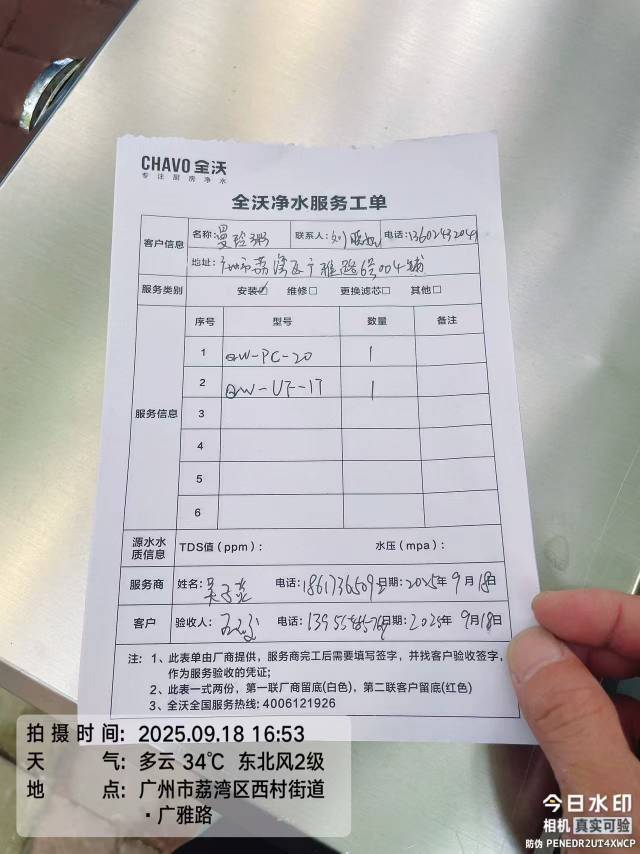 CHAVO 全沃
专注厨房净水
全沃净水服务工单
客户信息 名称: 曼玲粥 联系人: 电话: 13602432049
地址: 广州市荔湾区广雅路6号004铺
服务类别 安装☑ 维修□ 更换滤芯□ 其他□
服务信息 序号 型号 数量 备注
1 QW-PC-20 1
2 QW-UF-1T 1
3
4
5
6
源水水质信息 TDS值（ppm）： 水压（mpa）：
服务商 姓名: 电话: 日期: 2025年9月18日
客户 验收人: 电话: 日期: 2025年9月18日
注: 1、此表单由厂商提供，服务商完工后需要填写签字，并找客户验收签字，
作为服务验收的凭证;
2、此表一式两份，第一联厂商留底(白色)，第二联客户留底(红色)
3、全沃全国服务热线: 4006121926
拍摄时间: 2025.09.18 16:53
天气: 多云 34℃ 东北风2级
地点: 广州市荔湾区西村街道
·广雅路
今日水印
相机 真实可验
防伪 PENEDR2UT4XWCP